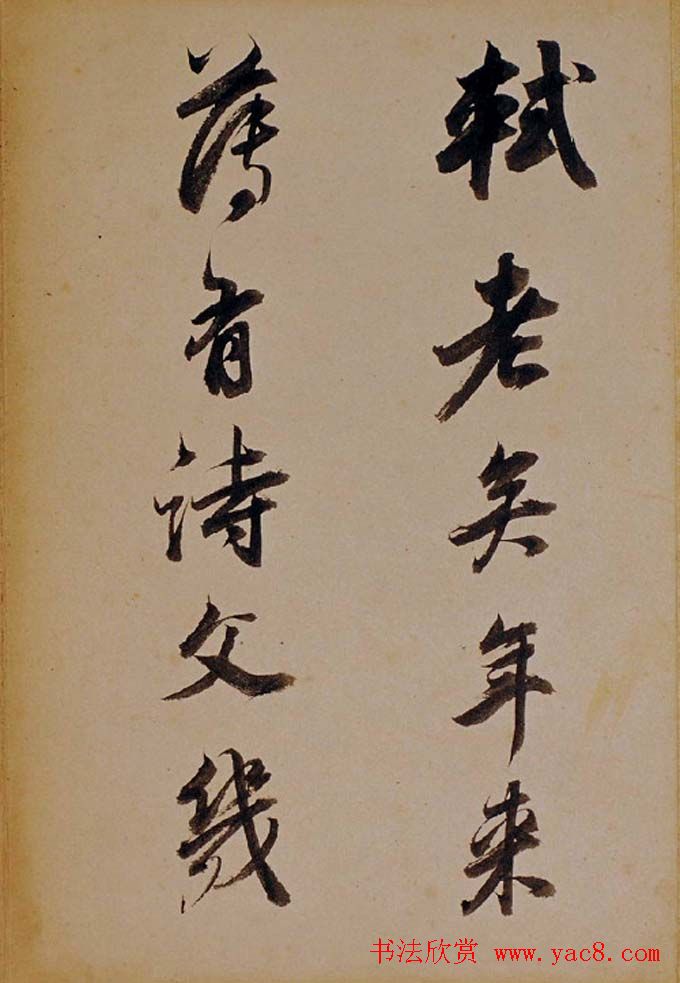 軾老矣年来
薄有詩文幾
书法欣赏 www.yac8.com